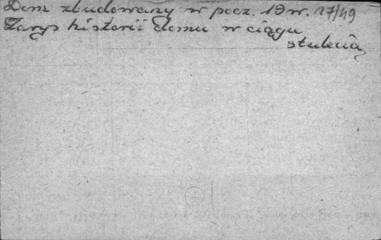 Dom zbudowany w pocz. 19 w. 27/49
Zarys historii domu w ciągu
stulecia